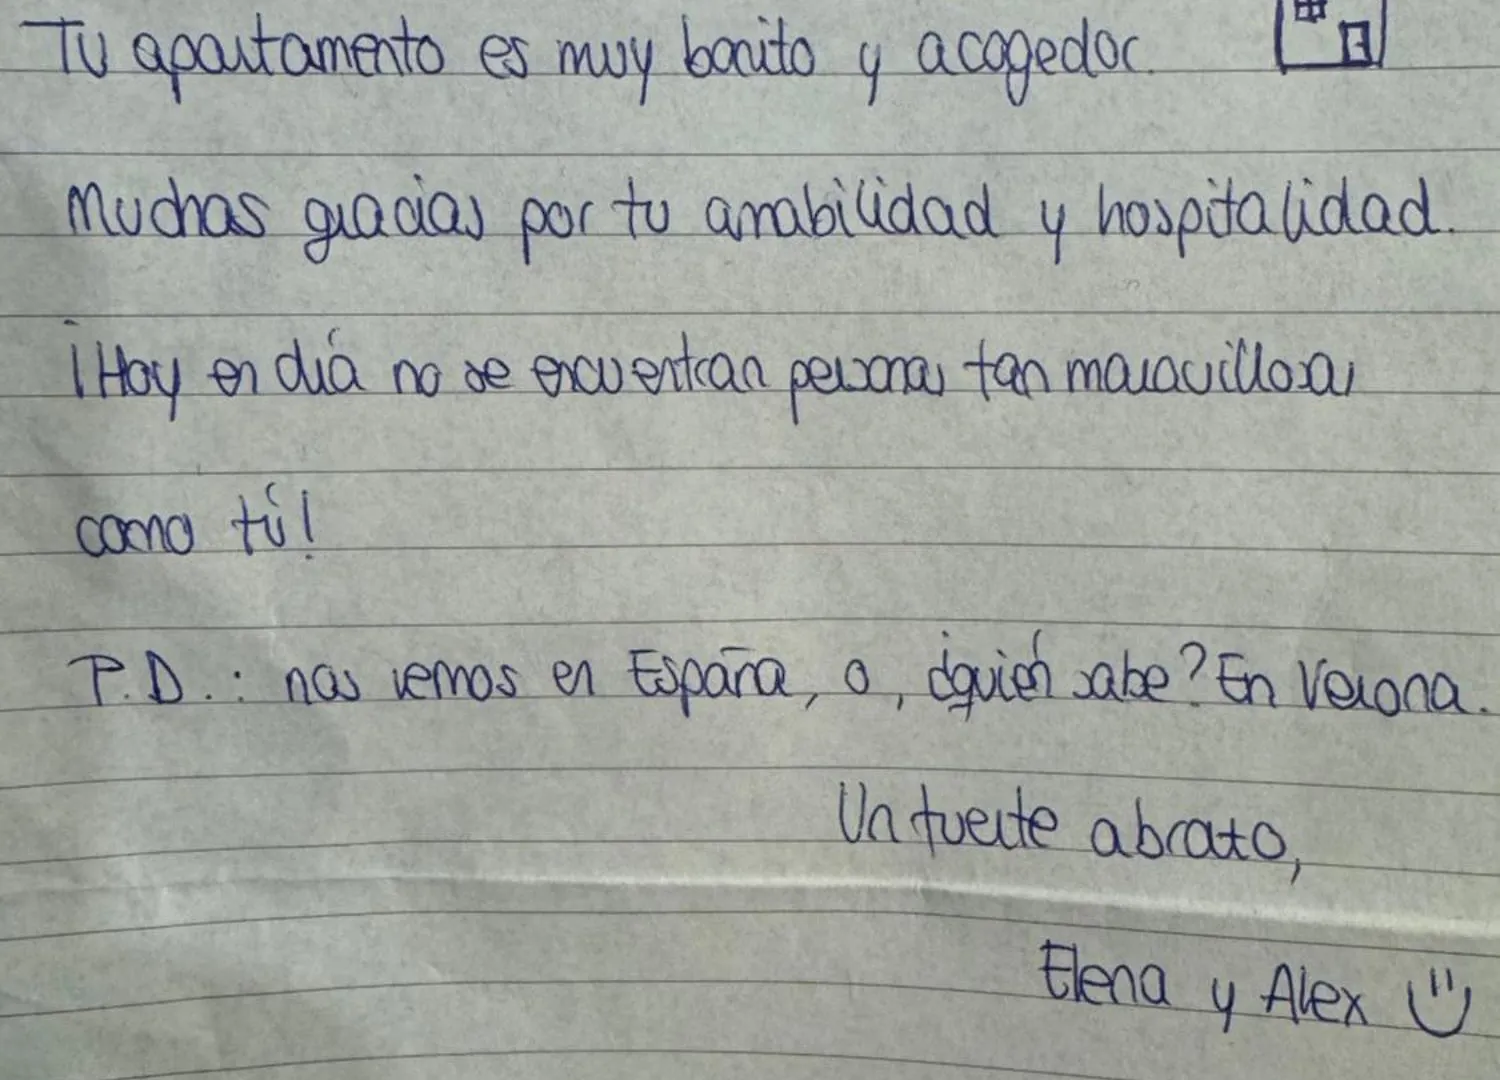 Tu apartamento es muy bonito y acogedor.
Muchas gracias por tu amabilidad y hospitalidad.
¡Hoy en día no se encuentran personas tan maravillosas
como tú!
P.D.: nos vemos en España, o, ¿quién sabe? En Verona.
Un fuerte abrazo,
Elena y Alex